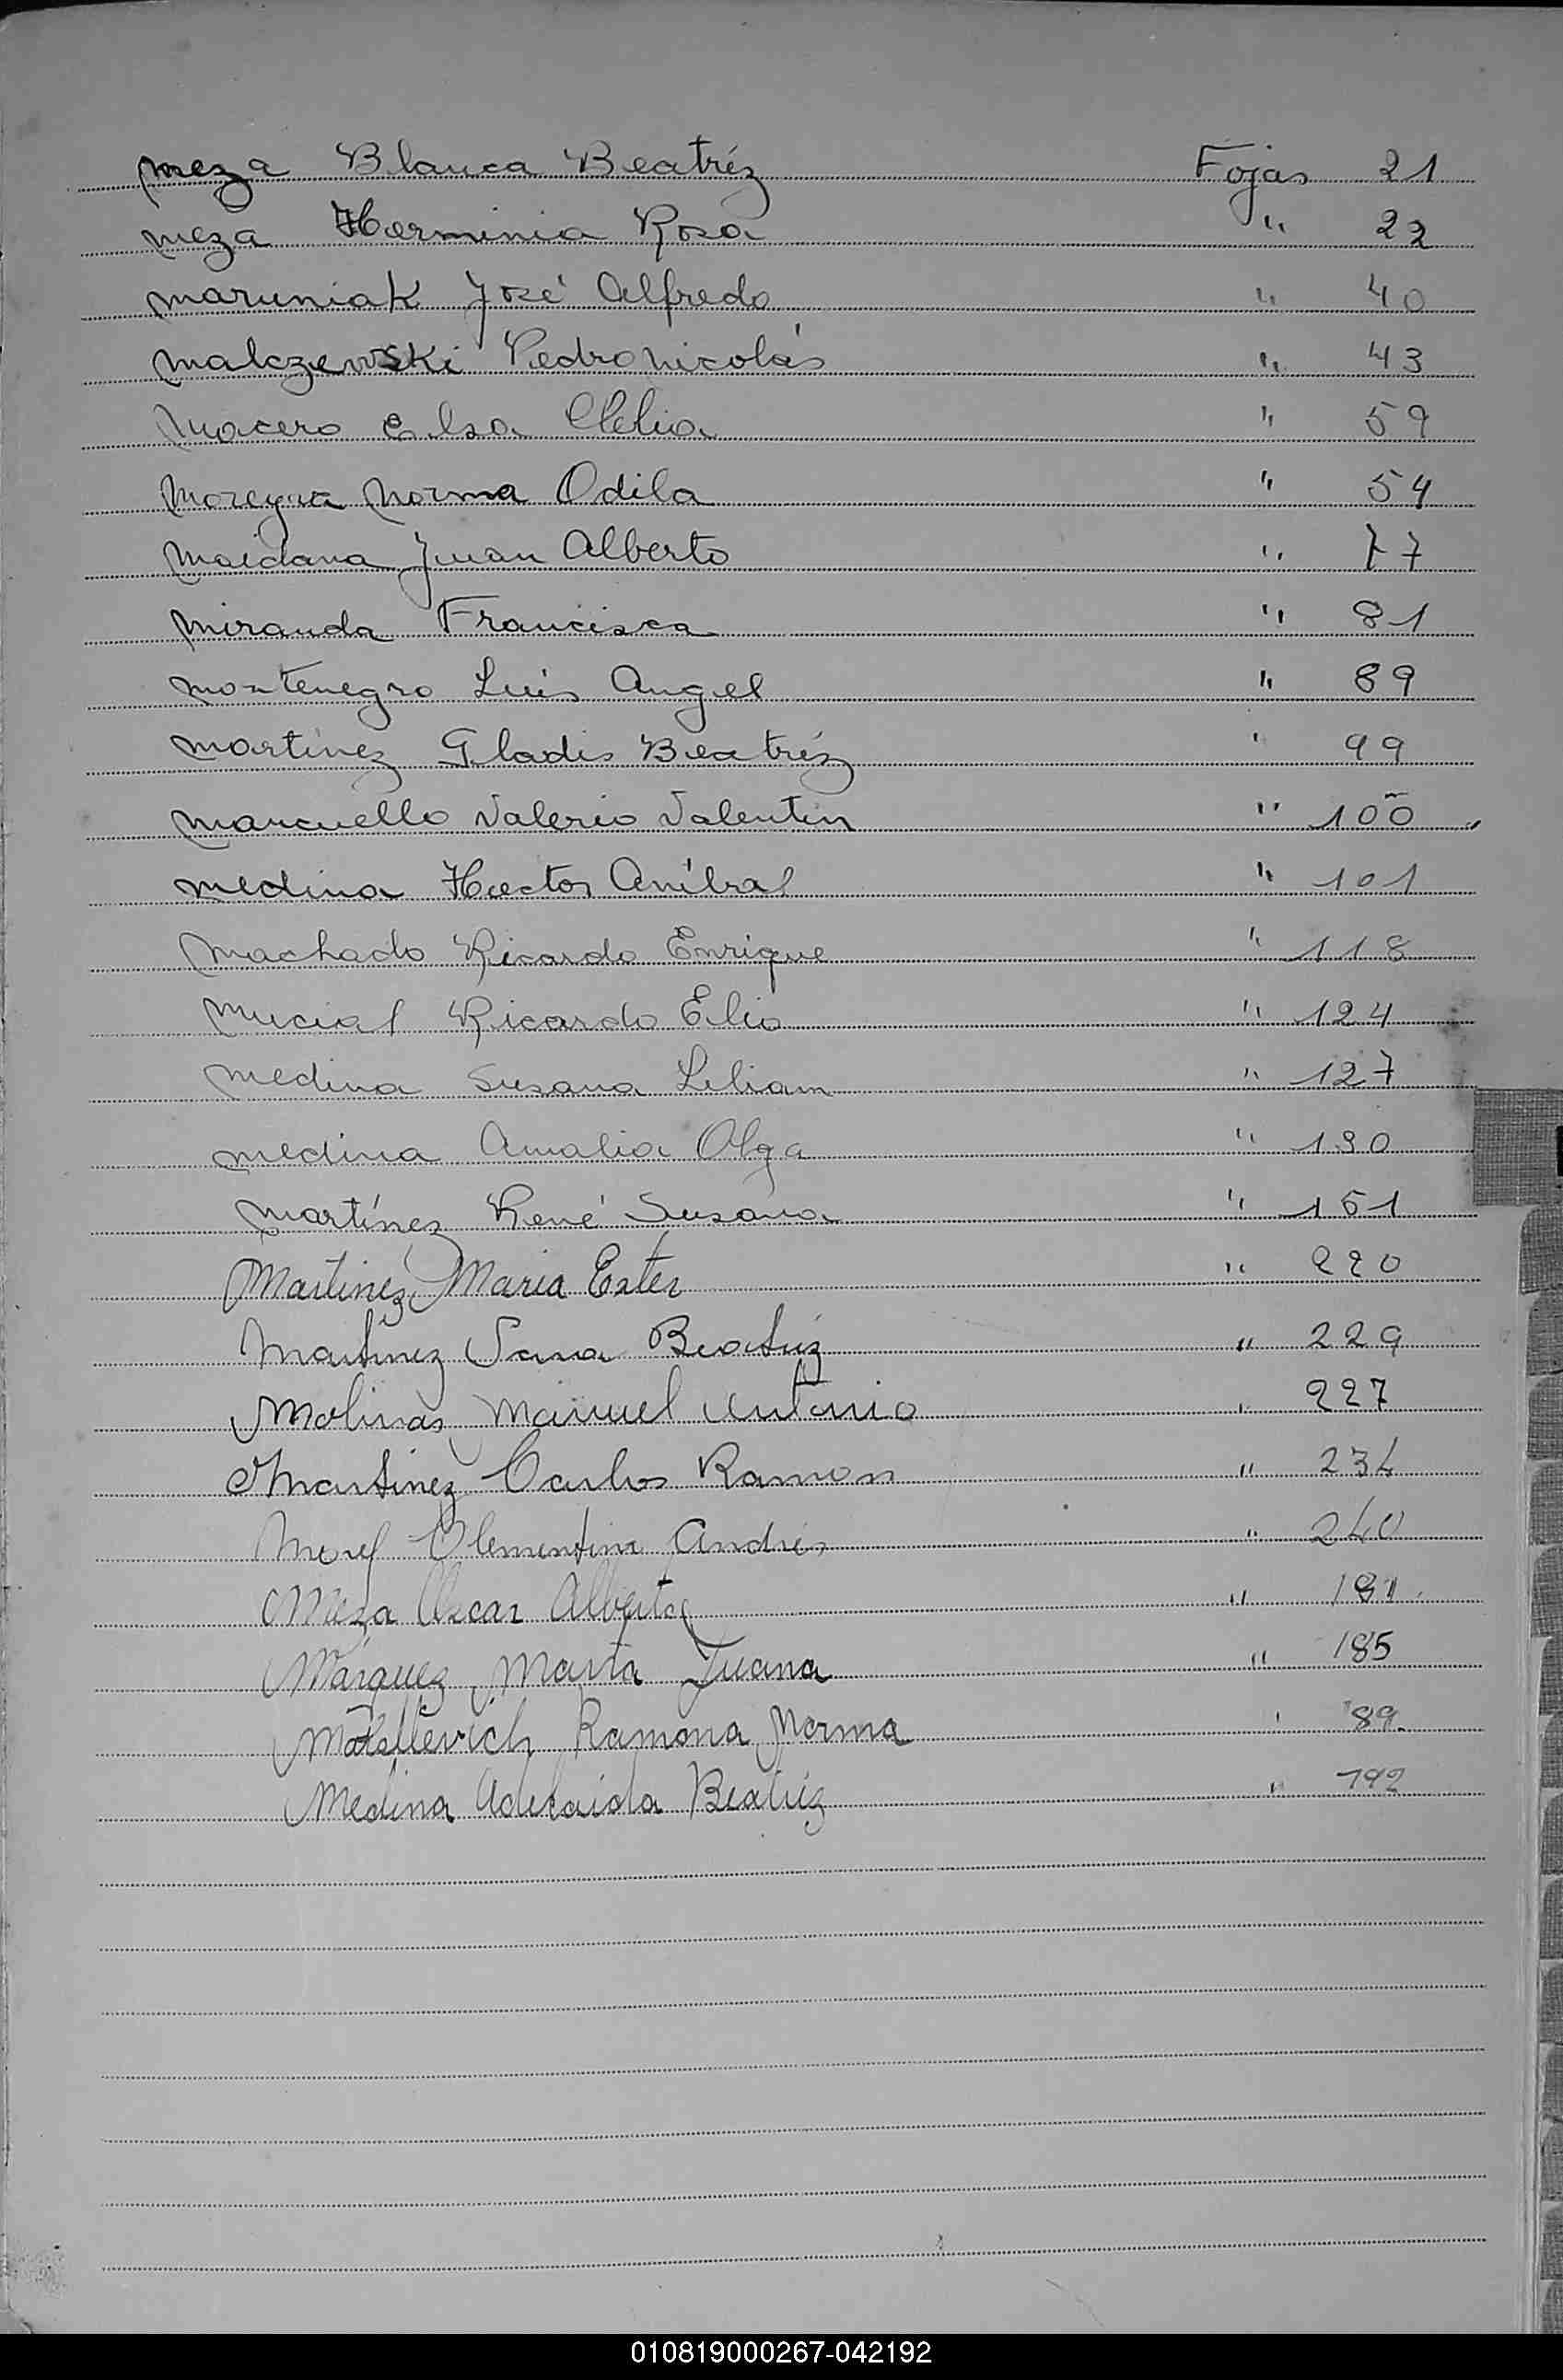 Meza Blanca Beatríz Fojas 21
Meza Herminia Rosa " 22
Maruniak José Alfredo " 40
Malczewski Pedro Nicolás " 43
Macero Elsa Clelia " 59
Moreyra Norma Odila " 54
Maidana Juan Alberto " 77
Miranda Francisca " 81
Montenegro Luis Angel " 89
Martínez Gladis Beatríz " 99
Mancuello Valerio Valentin " 100
Medina Hector Aníbal " 101
Machado Ricardo Enrique " 118
Mucial Ricardo Elio " 124
Medina Susana Liliam " 127
Medina Amalia Olga " 130
Martínez René Susana " 151
Martinez Maria Ester " 220
Martinez Sara Beatriz " 229
Molinas Manuel Antonio " 227
Martinez Carlos Ramon " 234
Clementina Andrés " 240
Meza Oscar Alberto "
Márquez Marta Juana " 185
Ramona Norma " 89
Medina Adelaida Beatriz " 192
010819000267-042192